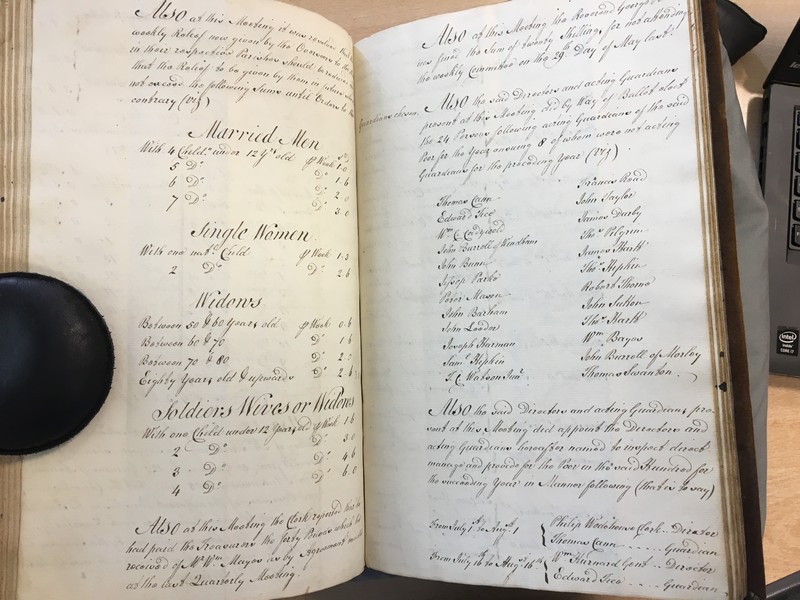 Also at this Meeting it was resolved that
weekly Relief now given by the Overseers to the
in their respective Parishes should be reduced
that the Relief to be given by them in future
not exceed the following Sums until Orders to the
contrary (viz)
Married Men
With 4 Childn. under 12 Yrs. old pr Week 1.0
5 Do. Do. 1.6
6 Do. Do. 2.0
7 Do. Do. 3.0
Single Women
With one natl. Child pr Week 1.3
2 Do. Do. 2.6
Widows
Between 50 & 60 Years old pr Week 0.6
Between 60 & 70 Do. 1.6
Between 70 & 80 Do.
Eighty Years old & upwards Do. 2.6
Soldiers Wives or Widows
With one Child under 12 Years old pr Week 1.6
2 Do. Do. 3.0
3 Do. Do. 4.6
4 Do. Do. 6.0
Also at this Meeting the Clerk reported that he
had paid the Treasurer the forty Pounds which he
received of Mr. Wm. Mayes as by Agreement
at the last Quarterly Meeting.
Also at this Meeting the Reverend George
was fined the Sum of twenty Shillings for not attending
the weekly Committee on the 29th Day of May last.
Guardians chosen.
Also the said Directors and acting Guardians
present at this Meeting did by Way of Ballot elect
the 24 Persons following acting Guardians of the said
Poor for the Year ensuing 8 of whom were not acting
Guardians for the preceding Year (viz)
Thomas Cann Francis Read
Edward Tice John Taylor
Wm. C. James Darby
John Burrell of Windham Thos. Pilgrim
John Bunn James Harth
Jessop Parke Thos. Hipkin
Peter Mason Robert Thorne
John Barham John Sutton
John Loades Thos. Harth
Joseph Harman Wm. Bayes
Saml. Hipkin John Burrell of Morley
T. C. Watson Junr. Thomas Swanton
Also the said Directors and acting Guardians pre-
sent at this Meeting did appoint the Directors and
acting Guardians hereafter named to inspect direct
manage and provide for the Poor in the said Hundred for
the succeeding Year in Manner following (that is to say)
From July 1st to Augt. 1 Philip Wodehouse Clerk .. Director
Thomas Cann ...... Guardian
From July 16 to Augt. 16th Wm. Gent .. Director
Edward Tice .... Guardian
intel
inside
CORE i7